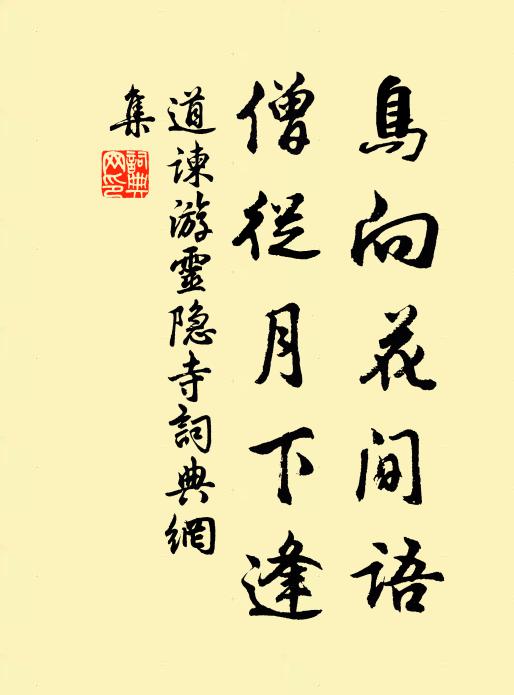 鳥向花間語
僧從月下逢
道諫游靈隐寺詞典網
集
詞典
网印